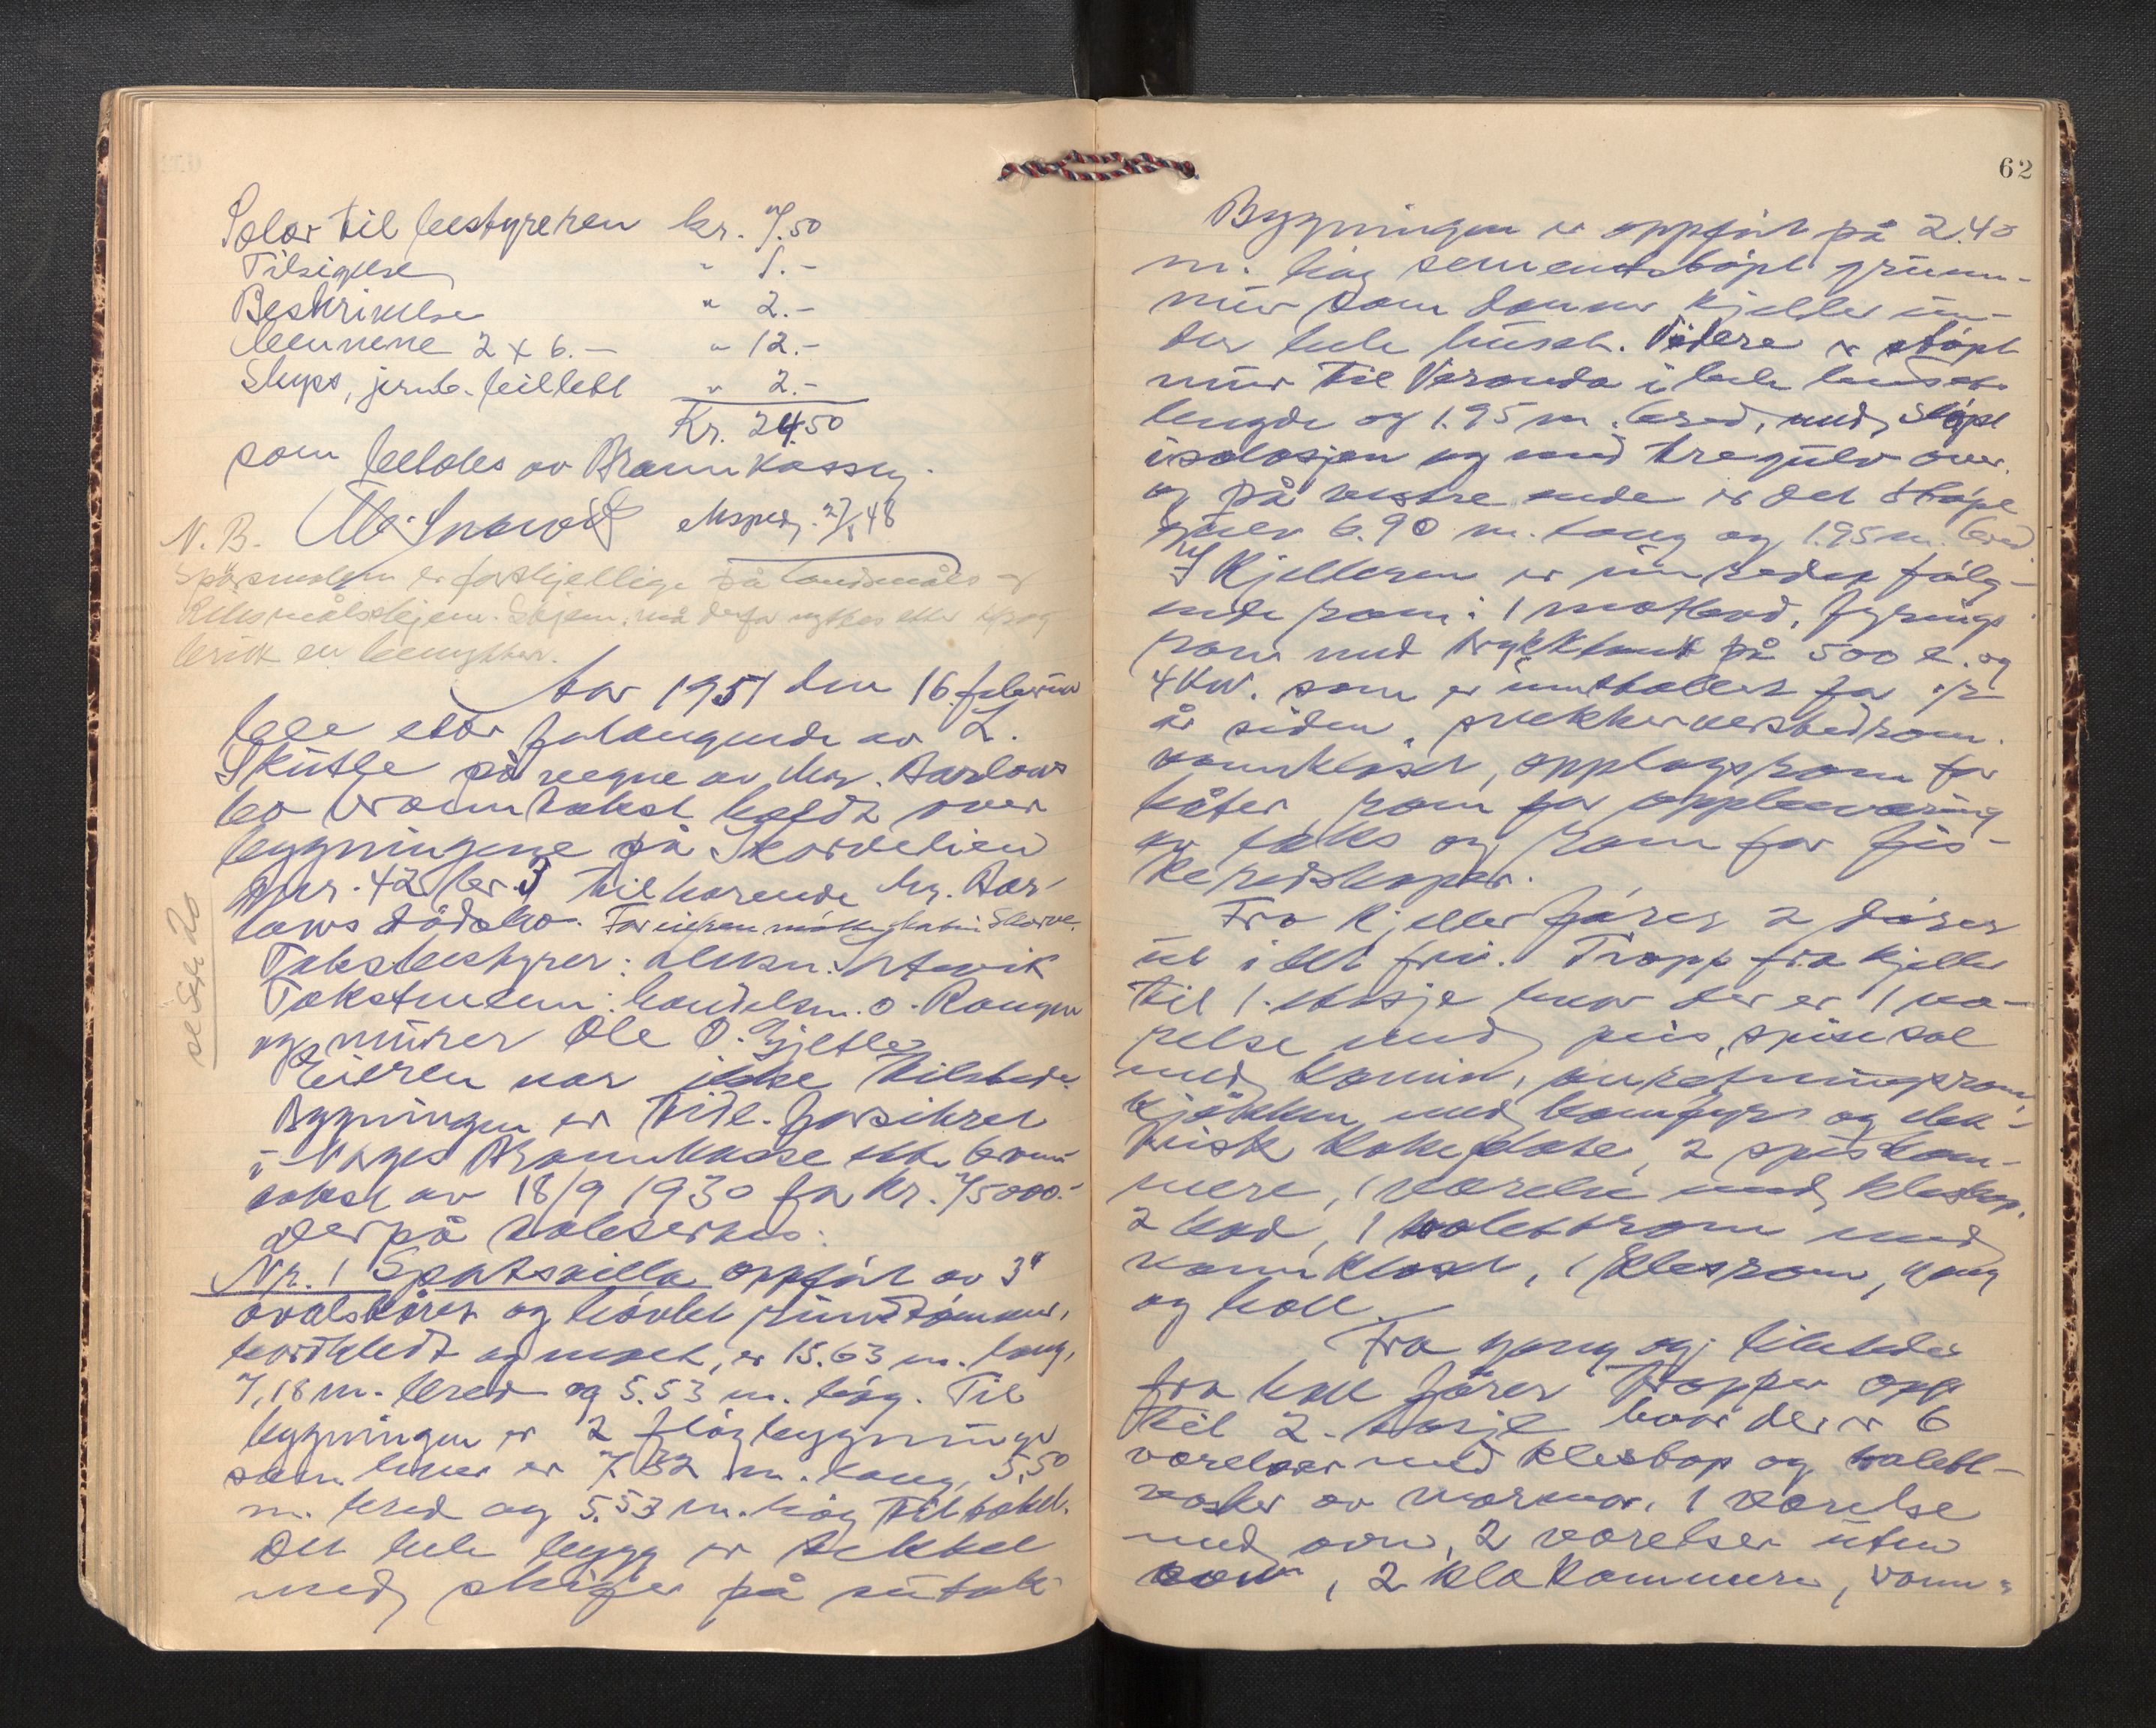 Salær til bestyreren kr. 7.50
Tilsigelse " 1.-
Beskrivelse " 2.-
Mennene 2 x 6.- " 12.-
Skyss, jernb. billett " 2.-
Kr. 24.50
som betales av Brannkassen.
eksped. 48
N. B.
er forskjellige på landsmåls og
Riksmålsskjema. Skjema må derfor
bruk en benytter.
Aar 1951 den 16. februar
ble etter forlangende av L.
Skutle på vegne av Mr. Barlows
bo branntakst holdt over
bygningene på Skorvelien
gnr. 42 br. 3 tilhørende Mr. Bar-
lows dødsbo. For eieren møtte
Takstbestyrer: lensm.
Takstmenn: handelsm. O. Rongen
og murer Ole O. Gjelle
Eieren var ikke tilstede.
Bygningen er tidl. forsikret
i Norges Brannkasse etter brann-
takst av 18/9 1930 for kr. 75000.-
Derpå takseres:
se side 20
Nr. 1 Sportsvilla oppført av 3"
ovalskåret og høvlet rundtømmer,
bordkledt og malt, er 15.63 m. lang,
7,18 m. bred og 5.53 m. høg. Til
bygningen er 2 fløybygninger
som hver er 7.32 m. lang, 5,50
m. bred og 5.53 m. høg til taket.
Det hele bygg er tekket
med skifer på sutak
62
Bygningen er oppført på 2.40
m. høg sementstøpt grunn-
mur som danner kjeller un-
der hele huset. Videre er støpt
mur til Veranda i hele husets
lengde og 1.95 m. bred, med støpt
isolasjon og med tregulv over.
og på vestre ende er det støpt
gulv 6.90 m. lang og 1.95 m. bred
I Kjelleren er innredet følg-
ende rom: 1 matbod, fyrings
rom med trykktank på 500 l. og
4 Kw. som er innkoblet for 1/2
år siden, snekkerverkstedrom.
vannkloset, opplagsrom for
båter, rom for oppbevaring
av laks og rom for fis-
keredskaper.
Fra kjeller fører 2 dører
ut i det fri. Tropp fra kjeller
til 1. etasje hvor der er 1 væ-
relse med peis, spisesal
med kamin, anretningsrom,
kjøkken med komfyr og elek-
trisk kokeplate, 2 spiskam-
mere, 1 værelse med kleskap,
2 bad, 1 toalettrom med
vannkloset, 1 klesrom, gang
og hall.
Fra gang og likeledes
fra hall fører tropper opp
til 2. etasje hvor der er 6
værelser med kleskap og toalett-
vasker av marmor, 1 værelse
med ovn, 2 værelser uten
ovn, 2 klekammere, vann-